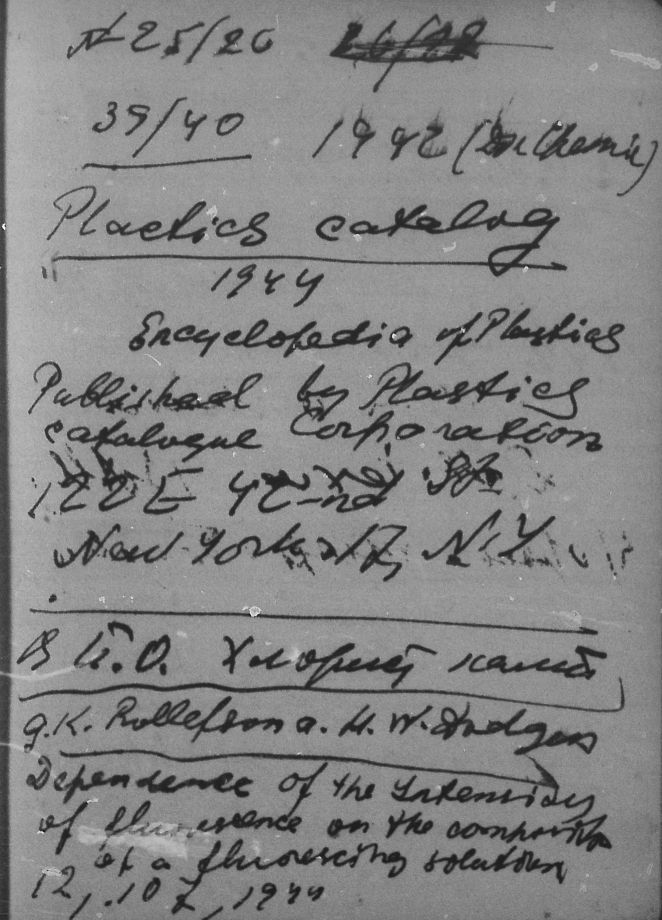 N 25/26
39/40 1942 (
Plastics catalog
1944
Encyclopedia of Plastics
Published by Plastics
catalogue Corporation
122 E 42-nd St.
New York 17, N.Y
В Хлорист калий
G.K. Rollefson a. H. W. Dodgen
Dependence of the Intensity
of fluorescence on the composition
of a fluorescing solution
12, 107, 1944